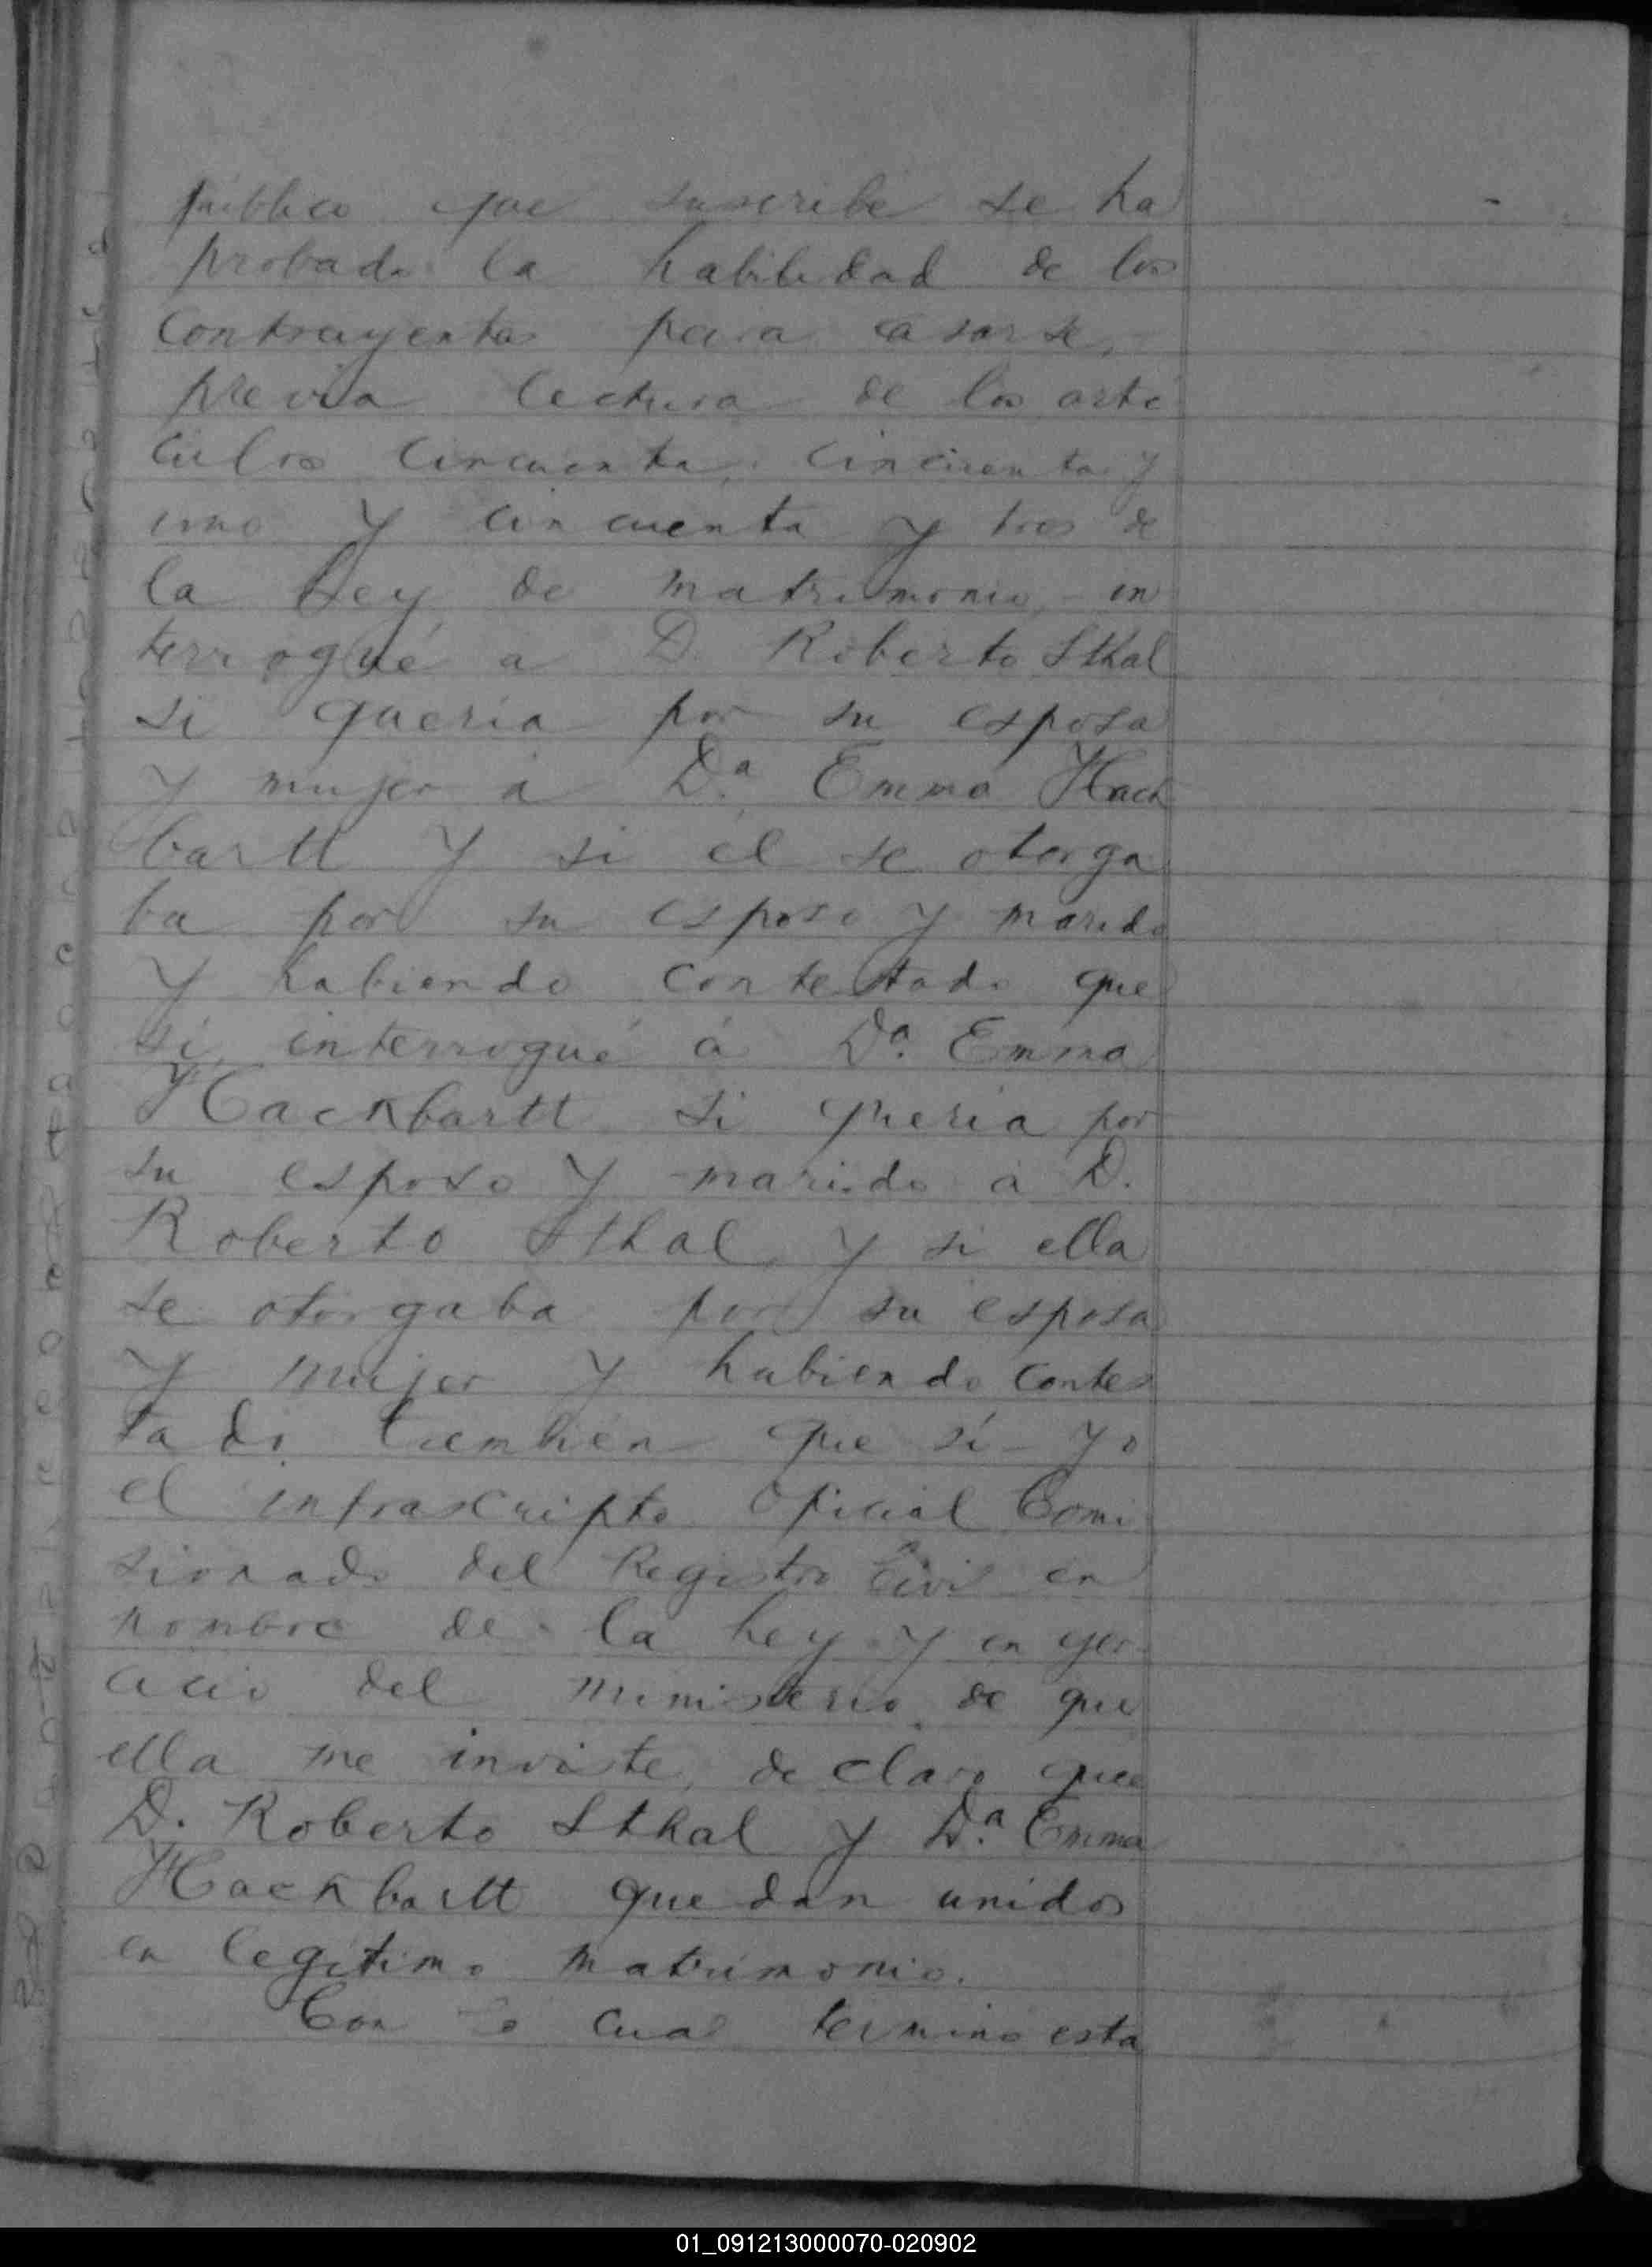 público que suscribe se ha
probado la habilidad de los
contrayentes para casarse,
previa lectura de los artí
culos cincuenta, cincuenta y
uno y cincuenta y tres de
la Ley de matrimonio, in
terrogué a D. Roberto Sthal
si quería por su esposa
y mujer á Dª. Emma Hack
bartt y si él se otorga
ba por su esposo y marido
y habiendo contestado que
sí, interrogué á Dª. Emma
Hackbartt si quería por
su esposo y marido a D.
Roberto Sthal, y si ella
se otorgaba por su esposa
y mujer y habiendo contes
tado también que sí - yo
el infrascripto Oficial Comi
sionado del Registro Civil en
nombre de la Ley y en ejer
cicio del ministerio de que
ella me inviste, declaro que
D. Roberto Sthal y Dª. Emma
Hackbartt quedan unidos
en legítimo matrimonio.
Con lo cual terminó esta
01_091213000070-020902